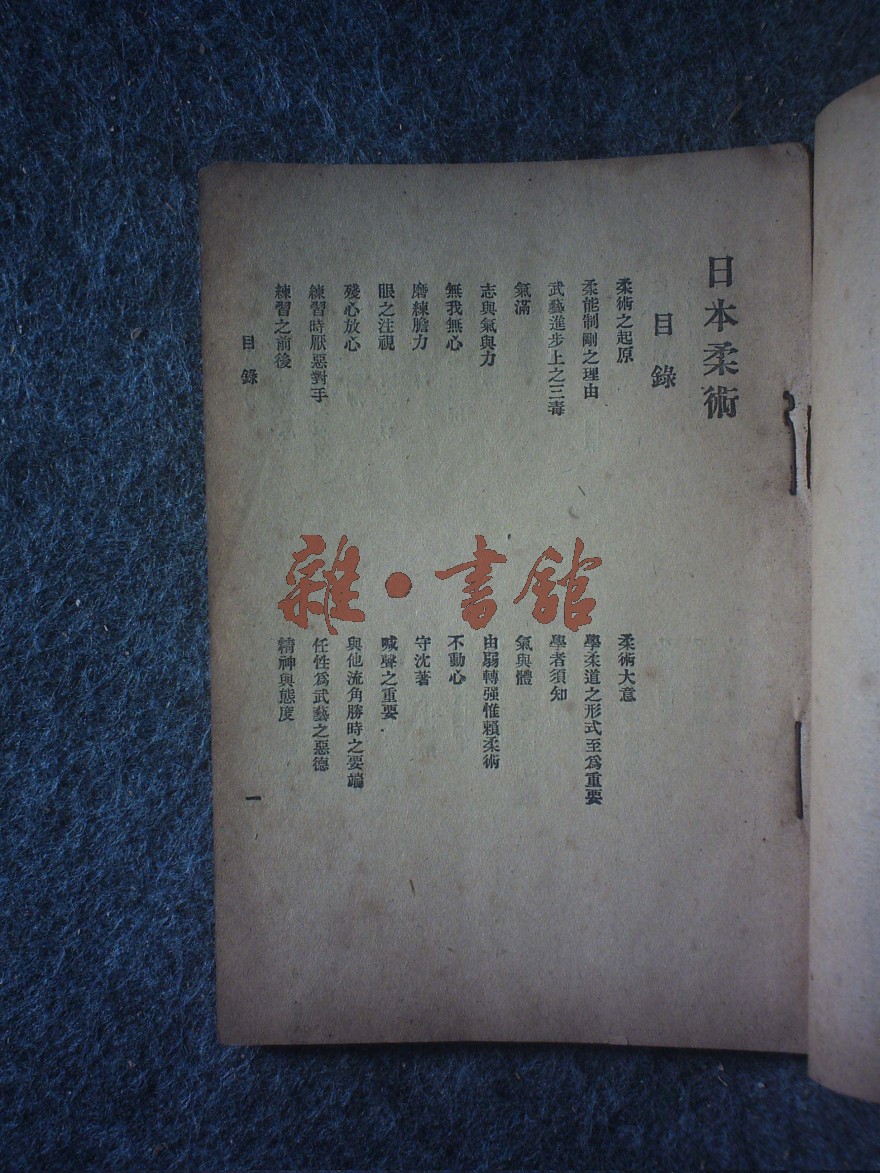 日本柔術
目錄
柔術之起原
柔術大意
柔能制剛之理由
學柔道之形式至爲重要
武藝進步上之三毒
學者須知
氣滿
氣與體
志與氣與力
由弱轉强惟賴柔術
無我無心
不動心
磨練膽力
守沈著
眼之注視
喊聲之重要
殘心放心
與他流角勝時之要端
練習時厭惡對手
任性爲武藝之惡德
練習之前後
精神與態度
目錄
一
雜·書館